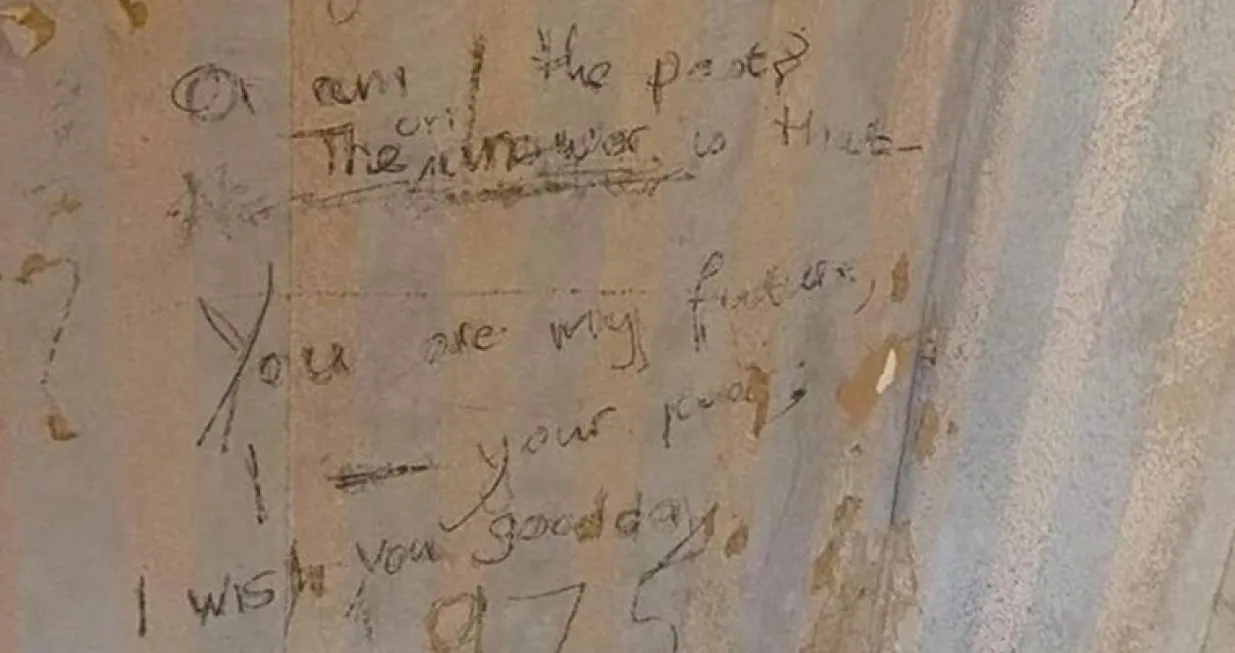 Or am I the past?
The answer is that
You are my future,
I — your past;
I wish you good day.
1975